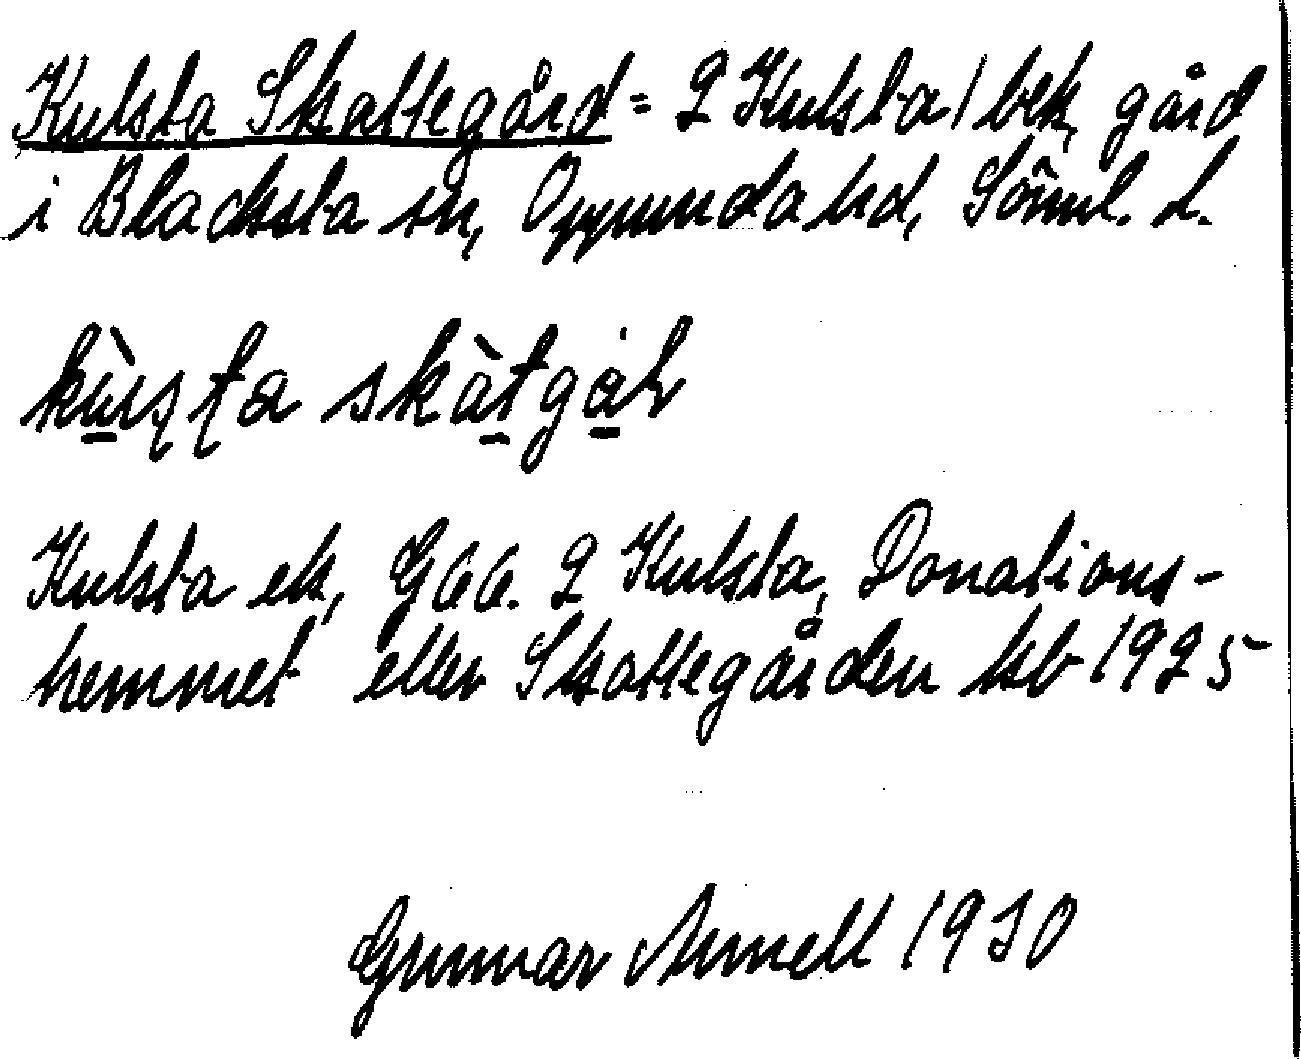 Kulsta Skattegård = 2 Kulsta 1 bek, gård
i Blacksta sn, Oppunda hd, Söml. L.
skàtgå
Kulsta ek, G66. 2 Kulsta, Donations-
hemmet eller Skattegården kb 1925
Gunnar Annell 1930